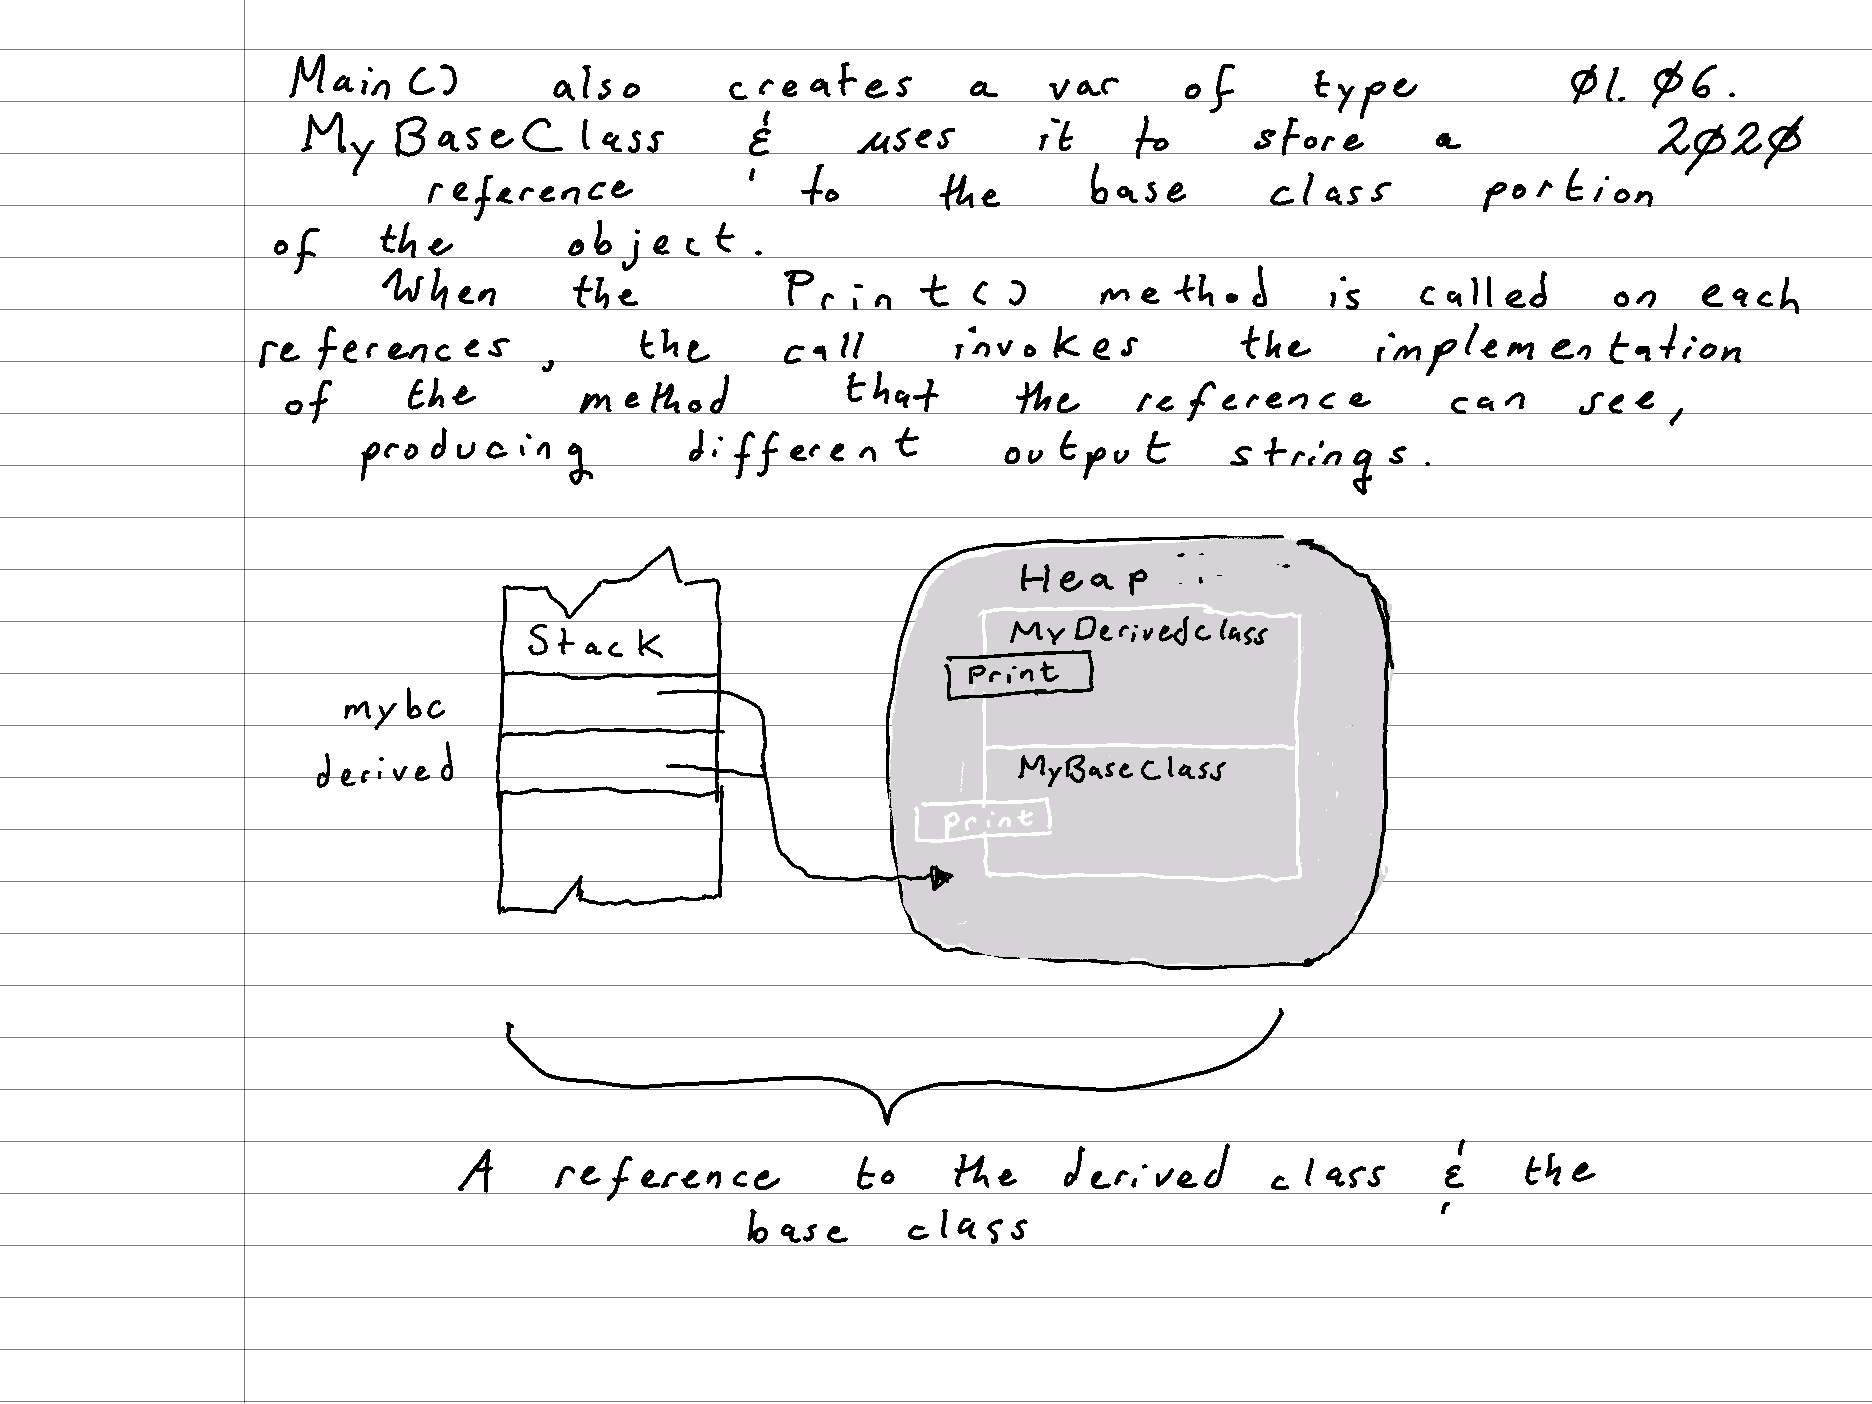 Main() also creates a var of type Ø1. Ø6.
MyBaseClass & uses it to store a 2Ø2Ø
reference to the base class portion
of the object.
When the Print() method is called on each
references, the call invokes the implementation
of the method that the reference can see,
producing different output strings.
Heap
Stack
MyDerivedclass
Print
mybc
derived
MyBaseClass
print
A reference to the derived class & the
base class